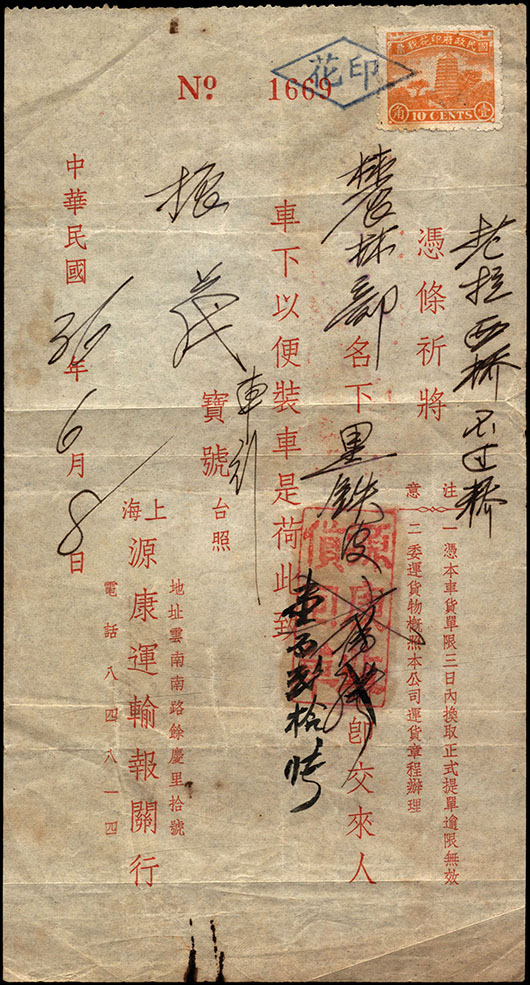 國民政府印花稅票
角 10 CENTS 壹
印花
No 1669
老拉西橋不过橋
憑條祈將
農林部名下黑鐵皮
即交來人
車下以便裝車是荷此致
壹百貳拾噸
振茂車行
寶號台照
中華民國36年6月8日
上海源康運輸報關行
地址雲南南路餘慶里拾號
電話八四八一四
注意
一憑本車貨單限三日內換取正式提單逾限無效
二委運貨物概照本公司運貨章程辦理